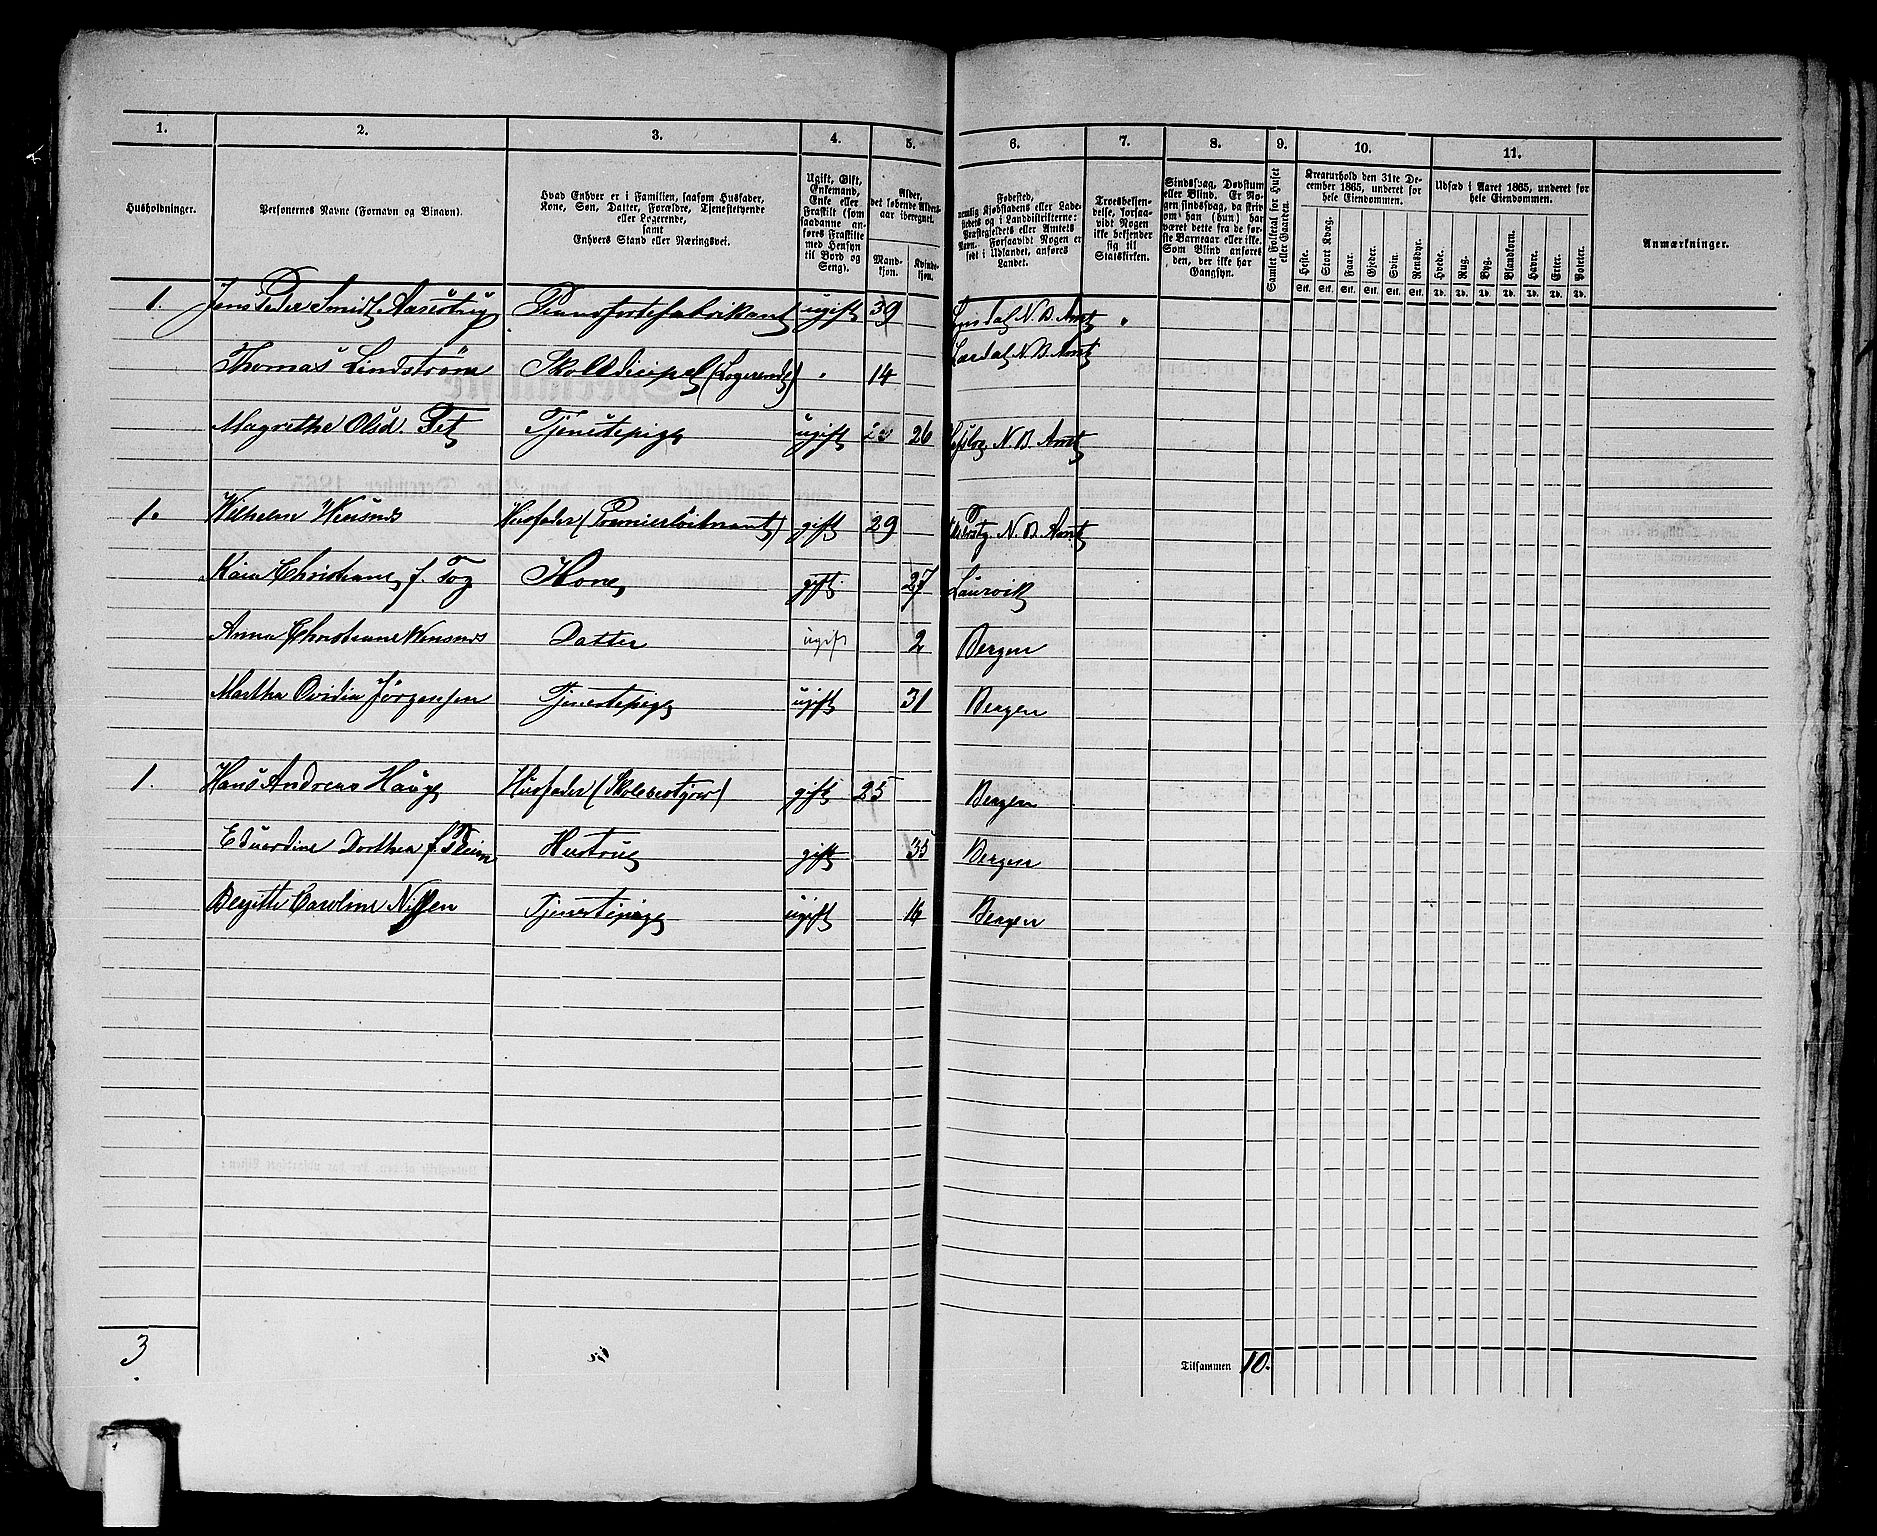 1. 2. 3. 4. 5. 6. 7. 8. 9. 10. 11.
Husholdninger.
Personernes Navne (Fornavn og Binavn).
Hvad Enhver er i Familien, saasom Husfader,
Kone, Søn, Datter, Forældre, Tjenestetyende
eller Logerende,
samt
Enhvers Stand eller Næringsvei.
Ugift, Gift,
Enkemand,
Enke eller
Fraskilt (som
saadanne an-
føres Fraskilte
med Hensyn
til Bord og
Seng).
Alder,
det løbende Alders-
aar iberegnet.
Mand-
kjøn.
Kvinde-
kjøn.
Fødested,
nemlig Kjøbstadens eller Lade-
stedets og i Landdistrikterne:
Præstegjeldets eller Amtets
Navn. Forsaavidt Nogen er
født i Udlandet, anføres
Landet.
Troesbekjen-
delse, forsaa-
vidt Nogen
ikke bekjender
sig til
Statskirken.
Sindssvag, Døvstum
eller Blind. Er No-
gen sindssvag, da skriv
om han (hun) har
været dette fra de før-
ste Barneaar eller ikke.
Som Blind anføres
den, der ikke har
Gangsyn.
Samlet Folketal for Huset
eller Gaarden.
Kreaturhold den 31te De-
cember 1865, underet for
hele Eiendommen.
Heste. Stort Kvæg. Faar. Gjeder. Svin. Rensdyr.
Stk. Stk. Stk. Stk. Stk. Stk.
Udsæd i Aaret 1865, underet for
hele Eiendommen.
Hvede. Rug. Byg. Blandkorn. Havre. Erter. Poteter.
Td. Td. Td. Td. Td. Td. Td.
Anmærkninger.
1. Jens Peder Smidt Aaserud Pianofortefabrikant ugift 39 N. B. Amt
Thomas Lindstrøm Skoledicipel (Logerende) 14 Lærdal N. B. Amt
Magrethe Olsd. Tjenestepige ugift 26 N. B. Amt
1. Wilhelm Husfader (Premierløitnant) gift 29 N. B. Amt
Christiane f. Kone gift 27 Laurvik
Anna Christiane Datter ugift 2 Bergen
Martha Ovidia Jørgensen Tjenestepige ugift 31 Bergen
1. Hans Andreas Hauge Husfader (Skolebestyrer) gift 25 Bergen
Eduardine Dorthea f. Hustru gift 35 Bergen
Bergitte Caroline Nilsen Tjenestepige ugift 16 Bergen
3
Tilsammen 10.